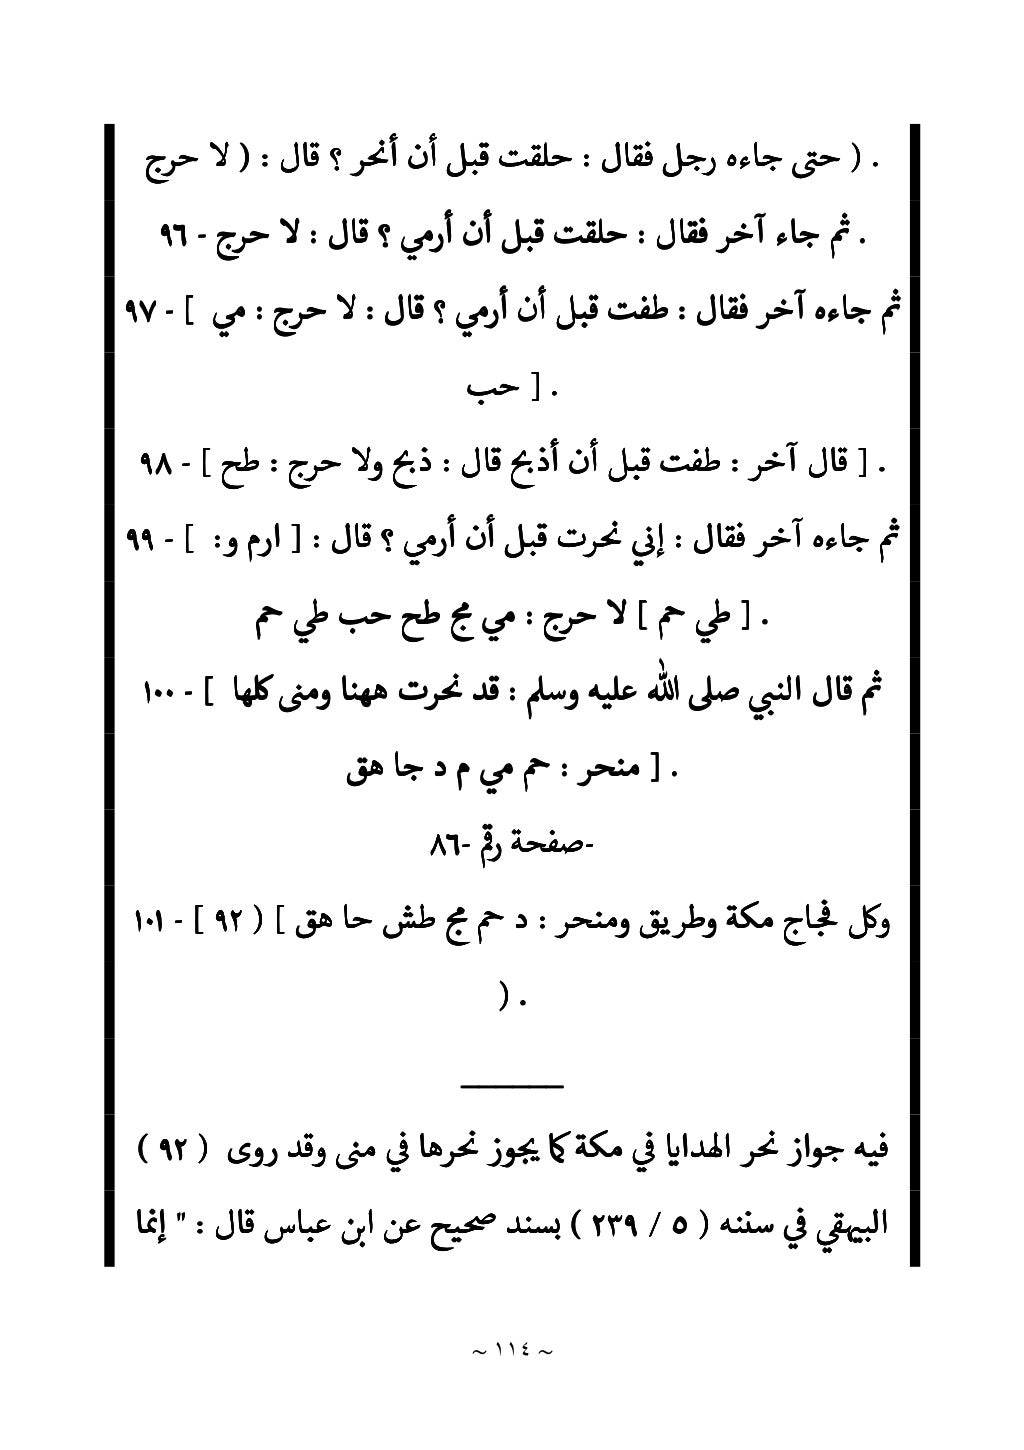 . ( حتى جاءه رجل فقال : حلقت قبل أن أنحر ؟ قال : ( لا حرج
. ثم جاء آخر فقال : حلقت قبل أن أرمي ؟ قال : لا حرج - ٩٦
ثم جاءه آخر فقال : طفت قبل أن أرمي ؟ قال : لا حرج : مي [ - ٩٧
. [ حب
. [ قال آخر : طفت قبل أن أذبح قال : ذبح ولا حرج : طح ] - ٩٨
ثم جاءه آخر فقال : إني نحرت قبل أن أرمي ؟ قال : [ ارم و: ] - ٩٩
. [ طي حم ] لا حرج : مي مج طح حب طي حم
ثم قال النبي صلى الله عليه وسلم : قد نحرت ههنا ومنى كلها [ - ١٠٠
. [ منحر : حم مي م د جا هق
-صفحة رقم -٨٦
وكل فجاج مكة وطريق ومنحر : د حم مج طش حا هق ] ( ٩٢ ] - ١٠١
. (
ــــــــــــــ
فيه جواز نحر الهدايا في مكة كما يجوز نحرها في منى وقد روى ( ٩٢ )
البيهقي في سننه ( ٥ / ٢٣٩ ) بسند صحيح عن ابن عباس قال : " إنما
~ ١١٤ ~